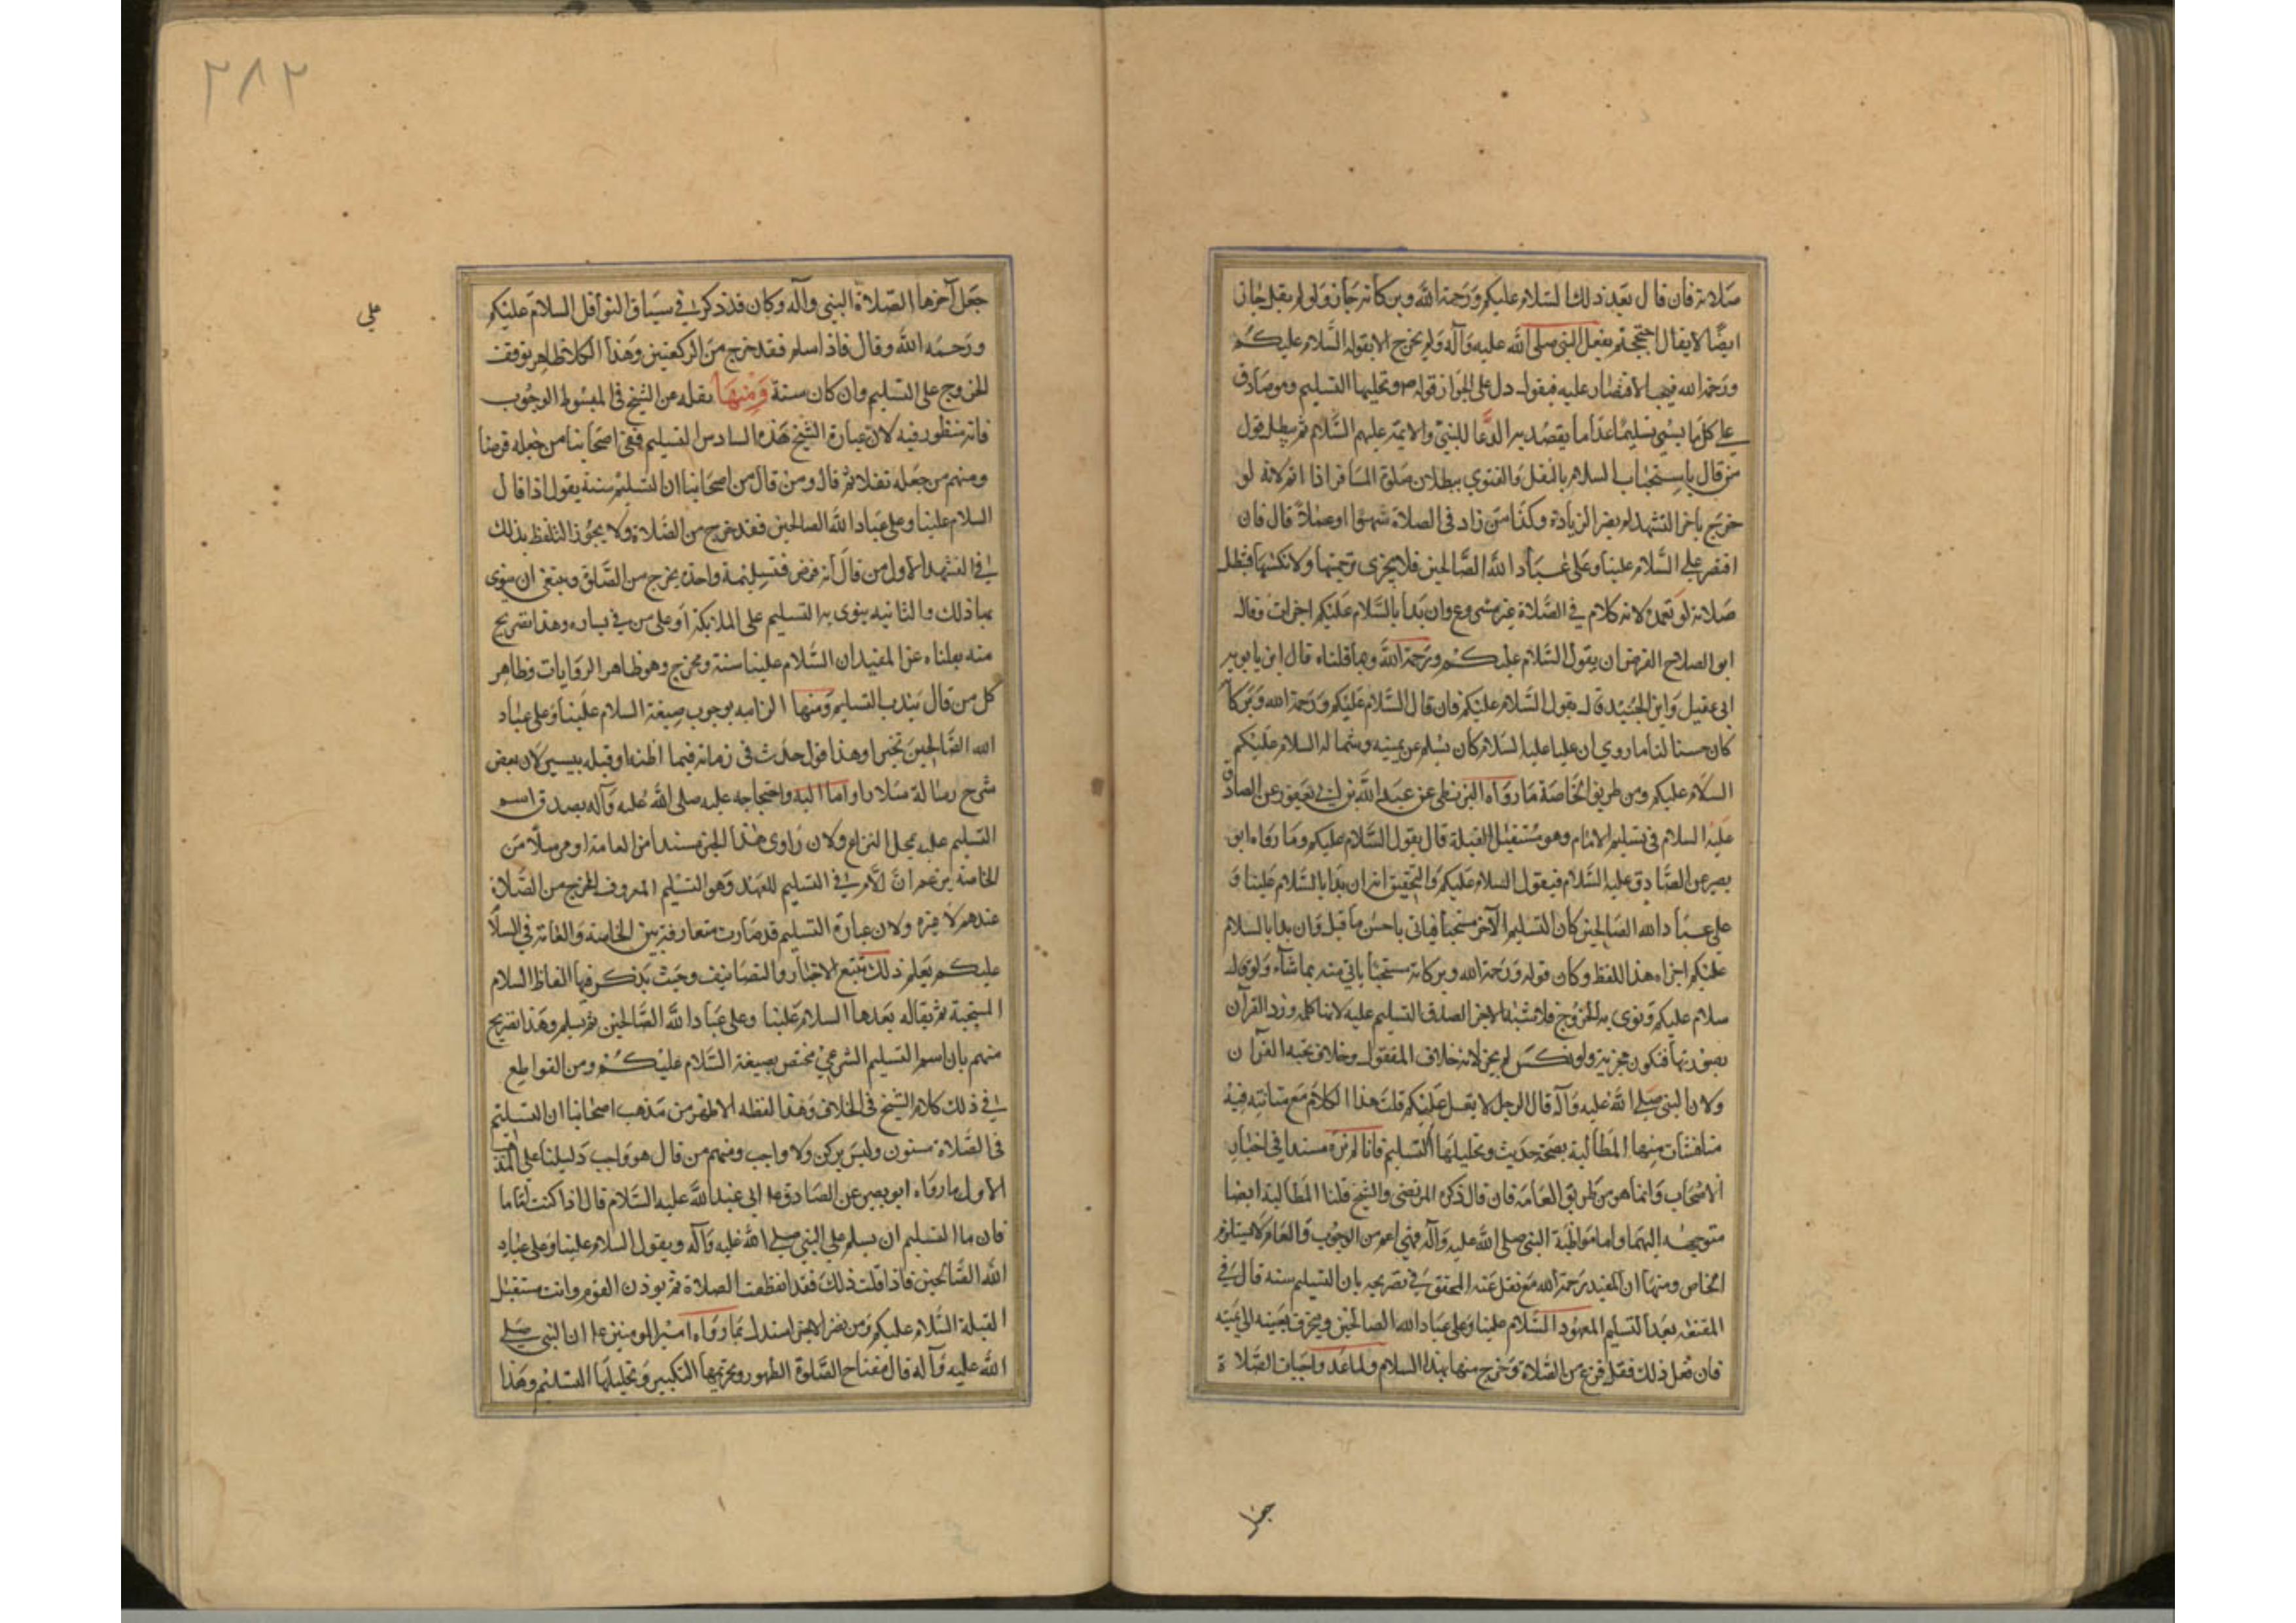 صلاته فان قال بعد ذلك السلام عليكم ورحمة الله وبركاته جاز ولو لم يقل جاز
ايضا لا يقال احتججتم بفعل النبي صلى الله عليه وآله ولم يخرج الا بقوله السلام عليكم
ورحمة الله فيجب الاقتصار عليه فيقول دل على الجواز قوله ص وتحليلها التسليم وهو صادق
على كل ما يسمي تسليما عدا ما يقصد به الدعا للنبي والائمة عليهم السلام ثم يبطل قول
من قال باستحباب السلام بالنقل والفتوي ببطلان صلوة المسافر اذا اتم لانه لو
خرج باخر التشهد لم يضر الزيادة وكذا من زاد في الصلاة سهوا او عملا قال فان
اقتصر علي السلام علينا وعلى عباد الله الصالحين فلا يجزى ترجمتها ولا نكسها فتبطل
صلاته لو تعمد لانه كلام في الصلاة غير مشروع وان بدأ بالسلام عليكم اجزأت وقال
ابو الصلاح الفرض ان يقول السلام عليكم ورحمة الله وبما قلناه قال ابن بابويه
ابى عقيل وابن الجنيد قال يقول السلام عليكم فان قال السلام عليكم ورحمة الله وبركا
كان حسنا لنا ما روي ان عليا عليه السلام كان يسلم عن يمينه وشماله السلام عليكم
السلام عليكم ومن طريق الخاصة ما رواه البزنطى عن عبد الله بن ابي يعفور عن الصادق
عليه السلام في تسليم الامام وهو مستقبل القبلة قال يقول السلام عليكم وما رواه ابو
بصير عن الصادق عليه السلام فيقول السلام عليكم والتحقيق انه ان بدا بالسلام علينا و
على عباد الله الصالحين كان التسليم الآخر مستحبا فياتى باحسن ما قيل وان بدا بالسلام
عليكم اجزاه هذا اللفظ وكان قوله ورحمة الله وبركاته مستحبا ياتي منه بما شآء ولو قال
سلام عليكم ونوى به الخروج فلاشبه الاجزاء لصدق التسليم عليه لانها كلمة ورد القرآن
بصورتها فتكون مجزية ولو نكس لم يجز لانه خلاف المنقول وخلاف تحية القرآن
ولان النبي صلى الله عليه وآله قال لرجل لا تقل عليكم قلت هذا الكلام مع متانته فيه
مناقشات منها المطالبة بصحة حديث وتحليلها التسليم فانا لم نره مسندا في اخبار
الاصحاب وانما هو من طريق العامة فان قال ذكره المرتضى والشيخ قلنا المطالبة ايضا
متوجهة اليهما واما مواظبة النبي صلى الله عليه وآله فهي اعم من الوجوب والعام لا يستلزم
الخاص ومنها ان المفيد رحمة الله مع نقل عنه المحقق في تصريحه بان التسليم سنة قال في
المقنعة بعد التسليم المعهود السلام علينا وعلى عباد الله الصالحين وينحرف بعينه الى يمينه
فان فعل ذلك فقد فرغ من الصلاة وخرج منها بهذا السلام ولما عد واجبات الصلاة
جعل
٢٨٢
جعل آخرها الصلاة النبي وآله وكان قد ذكر في سياق النوافل السلام عليكم
ورحمة الله وقال فاذا سلم فقد خرج من الركعتين وهذا الكلام ظاهر بوقف
الخروج على التسليم وان كان سنة ومنها نقله عن الشيخ في المبسوط الوجوب
فانه منظور فيه لان عبارة الشيخ هذه السادس التسليم ففي اصحابنا من جعله فرضا
ومنهم من جعله نفلا ثم قال ومن قال من اصحابنا ان التسليم سنة يقول اذا قال
السلام علينا وعلى عباد الله الصالحين فقد خرج من الصلاة ولا يجوز التلفظ بذلك
في التشهد الاول من قال انه فرض فتسليمة واحدة يخرج من الصلاة وينبغي ان ينوى
بها ذلك والثانية ينوى بها التسليم على الملائكة او على من في يساره وهذا تصريح
منه بما قلناه عن المفيد ان السلام علينا سنة ومخرج وهو ظاهر الروايات وظاهر
كل من قال بندب التسليم ومنها الزامه بوجوب صيغة السلام علينا وعلى عباد
الله الصالحين تخييرا وهذا قول حدث في زمانه فيما اظنه او قبله بيسير لان بعض
شرح رسالة سلار اواما اليه واحتجاجه عليه صلى الله عليه وآله بصدق اسم
التسليم عليه محل النزاع ولان راوى هذا الخبر مسندا من العامة او مرسلا من
الخاصة يزعم ان اللام في التسليم للعهد وهو التسليم المعروف المخرج من الصلاة
عندهم لا غيره ولان عبارة التسليم قد صارت متعارفة بين الخاصة والعامة في السلا
عليكم يعلم ذلك بتتبع الاخبار والتصانيف وحيث يذكر فيها الفاظ السلام
المستحبة ثم يقال بعدها السلام علينا وعلى عباد الله الصالحين ثم يسلم وهذا تصريح
منهم بان اسم التسليم الشرعي مختص بصيغة السلام عليكم ومن القواطع
في ذلك كلام الشيخ في الخلاف وهذا لفظه الاظهر من مذهب اصحابنا ان التسليم
في الصلاة مسنون وليس بركن ولا واجب ومنهم من قال هو واجب دليلنا على المذهب
الاول ما رواه ابو بصير عن الصادق ابي عبد الله عليه السلام قال اذا كنت اماما
فان ما التسليم ان يسلم علي النبي صلى الله عليه وآله ويقول السلام علينا وعلى عباد
الله الصالحين فاذا قلت ذلك فقد انقطعت الصلاة ثم يوذن القوم وانت مستقبل
القبلة السلام عليكم ومن نصر الاخير استدل بما رواه امير المومنين ع ان النبي صلى
الله عليه وآله قال مفتاح الصلوة الطهور وتحريمها التكبير وتحليلها التسليم وهذا
على